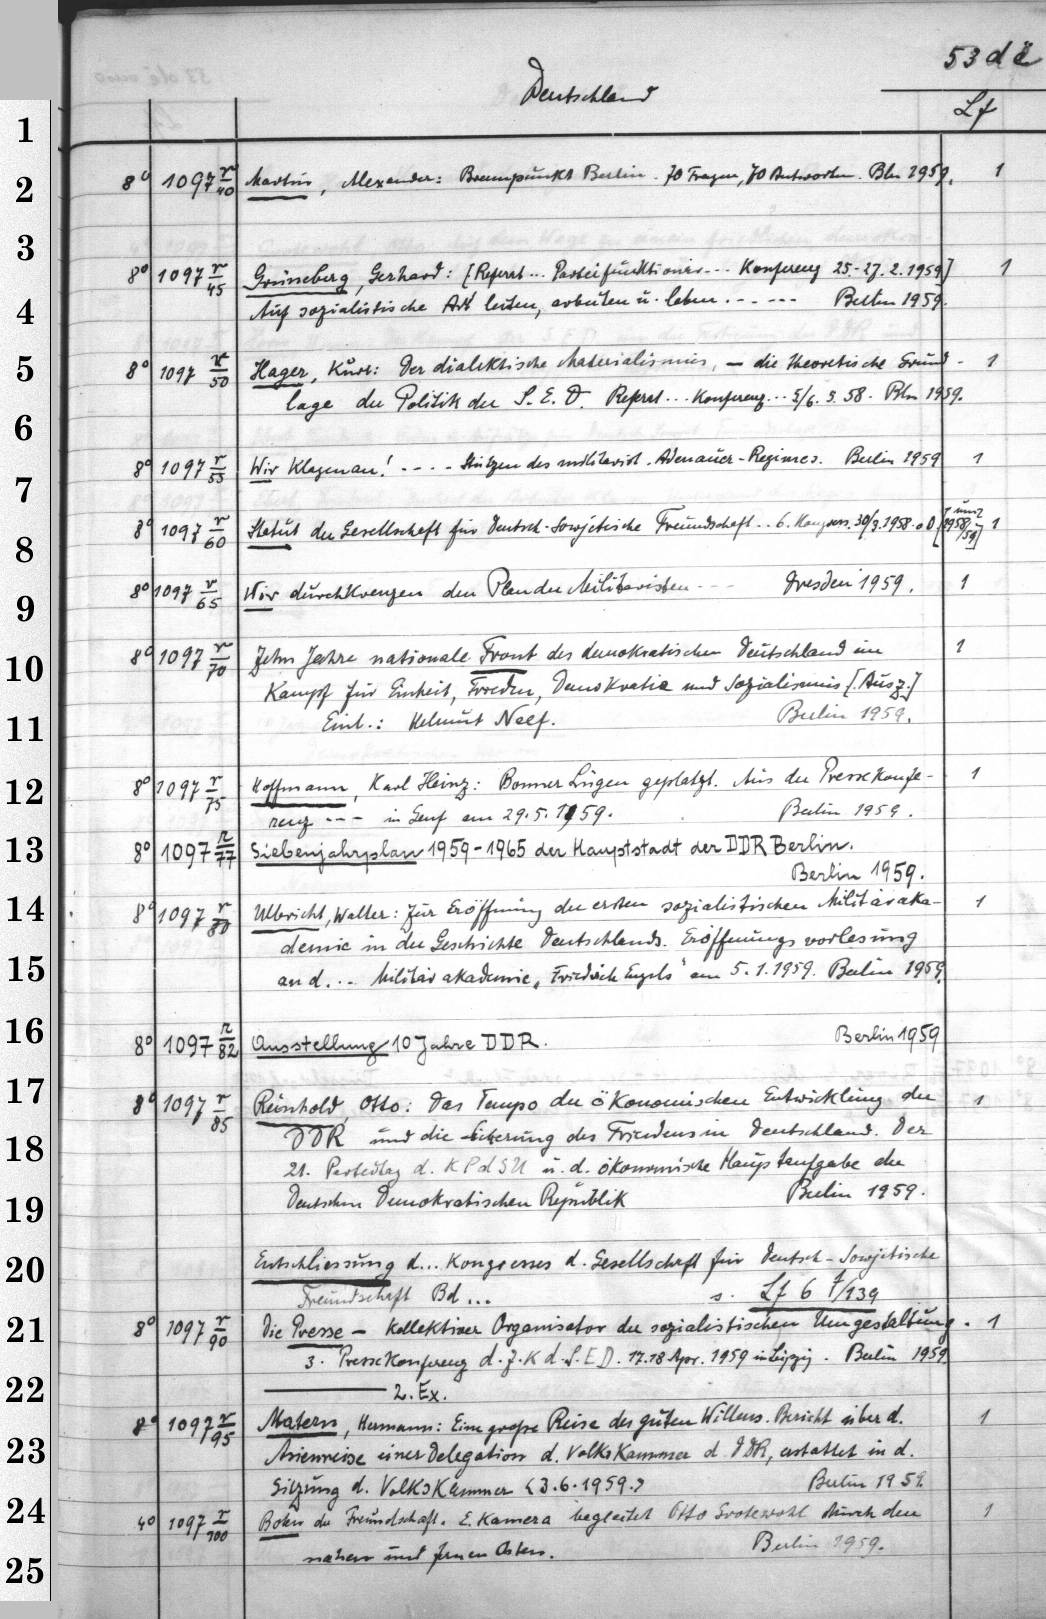 53 dë
Deutschland
Lf
1
2
8° 1097 r/40 Martius, Alexander: Brennpunkt Berlin. 70 Fragen, 70 Antworten. Bln 1959. 1
3
8° 1097 r/45 Grüneberg, Gerhard: [Referat... Parteifunktionär--- Konferenz 25.-27.2.1959] 1
4
Auf sozialistische Art leiten, arbeiten u. leben. - - --- Berlin 1959.
5
8° 1097 r/50 Hager, Kurt: Der dialektische Materialismus, - die theoretische Grund- 1
lage der Politik der S.E.D. Referat... Konferenz... 5/6.5.58. Bln 1959.
6
8° 1097 r/55 Wir klagen an! - - - - Stützen des militarist. Adenauer-Regimes. Berlin 1959 1
7
8° 1097 r/60 Statut der Gesellschaft für Deutsch-Sowjetische Freundschaft.. 6. Kongress. 30/3.1958. o O [1958/59] 1
8
8° 1097 r/65 Wir durchkreuzen den Plan der Militaristen --- Dresden 1959. 1
9
8° 1097 r/70 Zehn Jahre nationale Front des demokratischen Deutschland im 1
10
Kampf für Einheit, Frieden, Demokratie und Sozialismus [Ausz.]
Einl.: Helmut Neef. Berlin 1959.
11
8° 1097 r/75 Hoffmann, Karl Heinz: Bonner Lügen geplatzt. Aus der Pressekonfe- 1
12
renz --- in Genf am 29.5.1959. Berlin 1959.
13
8° 1097 r/77 Siebenjahrplan 1959-1965 der Hauptstadt der DDR Berlin.
Berlin 1959.
14
8° 1097 r/80 Ulbricht, Walter: Zur Eröffnung der ersten sozialistischen Militäraka- 1
demie in der Geschichte Deutschlands. Eröffnungsvorlesung
15
an d. .. Militärakademie „Friedrich Engels" am 5.1.1959. Berlin 1959.
16
8° 1097 r/82 Ausstellung 10 Jahre DDR. Berlin 1959
17
8° 1097 r/85 Reinhold, Otto: Das Tempo der ökonomischen Entwicklung der 1
DDR und die Sicherung des Friedens in Deutschland. Der
18
21. Parteitag d. KPdSU u. d. ökonomische Hauptaufgabe der
Deutschen Demokratischen Republik Berlin 1959.
19
Entschliessung d... Kongresses d. Gesellschaft für Deutsch-Sowjetische
20
Freundschaft Bd ... s. Lf 6 f/139
21
8° 1097 r/90 Die Presse - kollektiver Organisator der sozialistischen Umgestaltung. 1
3. Pressekonferenz d. Z.K d. S.E.D. 17.18 Apr. 1959 in Leipzig. Berlin 1959
22
——— 2. Ex.
8° 1097 r/95 Matern, Hermann: Eine große Reise des guten Willens. Bericht über d. 1
23
Asienreise einer Delegation d. Volkskammer d. DDR, erstattet in d.
Sitzung d. Volkskammer <3.6.1959.> Berlin 1959.
24
4° 1097 r/100 Boten der Freundschaft. E. Kamera begleitet Otto Grotewohl durch den 1
nahen und fernen Osten. Berlin 1959.
25